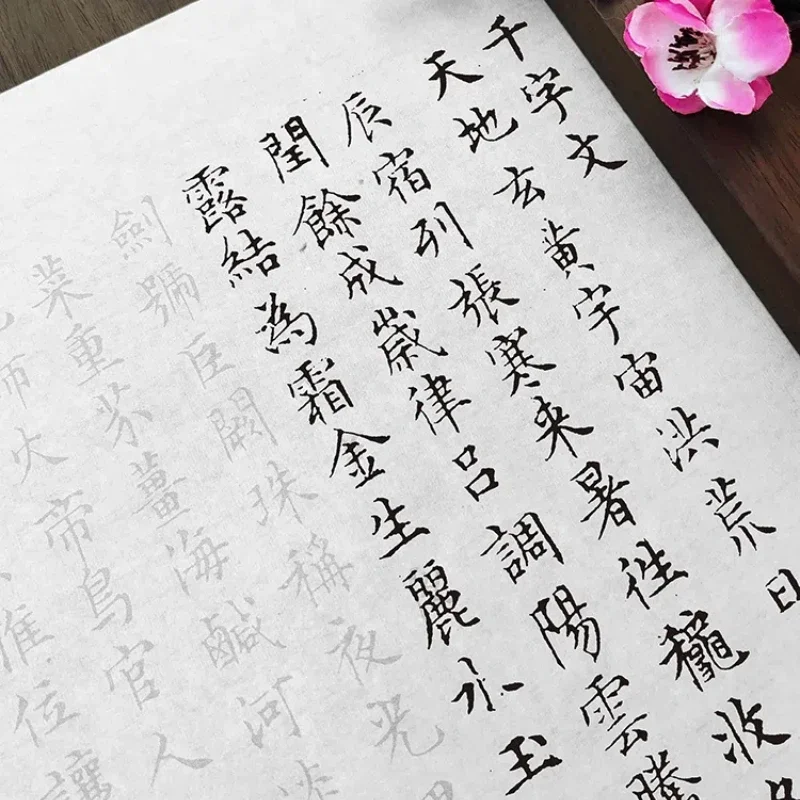 千字文
天地玄黄宇宙洪荒日
辰宿列張寒来暑往龝收
閏餘成歲律呂調陽雲騰
露結為霜金生麗水玉
劍號巨闕珠稱夜光
菜重芥薑海鹹河淡
師火帝鳥官人
推位讓